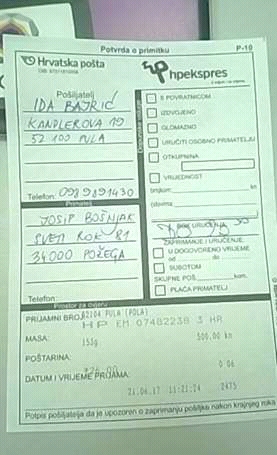 Potvrda o primitku P-10
Hrvatska pošta
hpekspres
Pošiljatelj
IDA BAJRIĆ
KANDLEROVA 19
52 100 PULA
Telefon: 098 9891430
Primatelj
JOSIP BOŠNJAK
SVETI ROK 81
34000 POŽEGA
Telefon:
S POVRATNICOM
IZDVOJENO
GLOMAZNO
URUČITI OSOBNO PRIMATELJU
OTKUPNINA
VRIJEDNOST
brojkom: kn
slovima
ZAPRIMANJE / URUČENJE
U DOGOVORENO VRIJEME
od do
SUBOTOM
SKUPNE POŠ. kom.
PLAĆA PRIMATELJ
Prostor za ovjeru
PRIJAMNI BROJ: 52104 PULA (POLA)
HP EM 07482238 3 HR
MASA: 153g 500.00 kn
POŠTARINA:
0 06
DATUM I VRIJEME PRIJAMA:
21.06.17 11:21:24 2475
Potpis pošiljatelja da je upozoren o zaprimanju pošiljke nakon krajnjeg roka